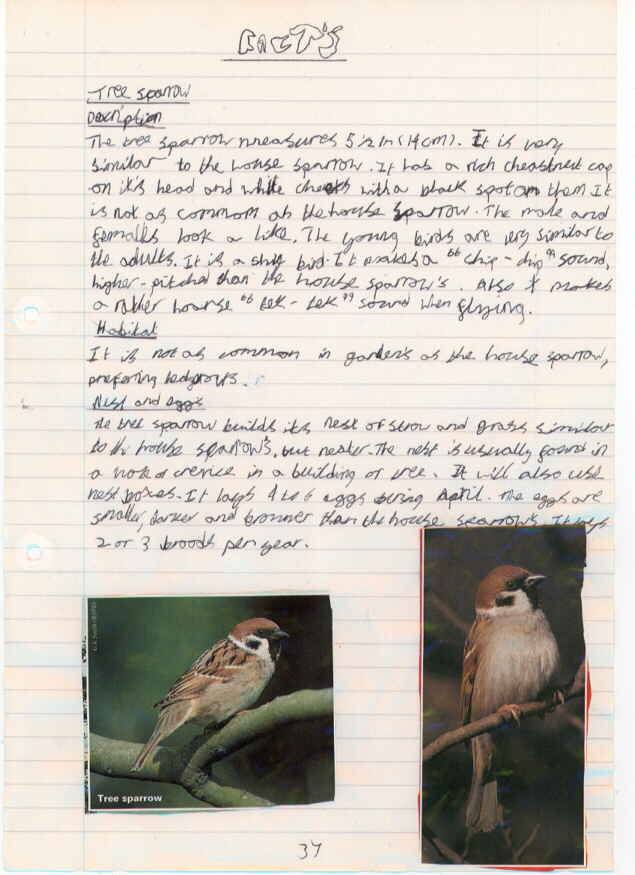 FACT'S
Tree sparrow
Description
The tree sparrow measures 5½ in (14cm). It is very
similar to the house sparrow. It has a rich cheastnut cap
on it's head and white cheeks with a black spot on them It
is not as common as the house sparrow. The male and
females look a like. The young birds are very similar to
the adults. It is a shy bird. It makes a "chip-chip" sound,
higher-pitched than the house sparrow's. Also it makes
a rather hoarse "tek-tek" sound when flying.
Habitat
It is not as common in garden's as the house sparrow,
preferring hedgrows.
Nest and eggs
The tree sparrow builds its nest of straw and grass similar
to the house sparrow's, but neater. The nest is usually found in
a hole or crevice in a building or tree. It will also use
nest boxes. It lays 4 to 6 eggs during April. The eggs are
smaller, darker and browner than the house sparrow's. It lays
2 or 3 broods per year.
Tree sparrow
37